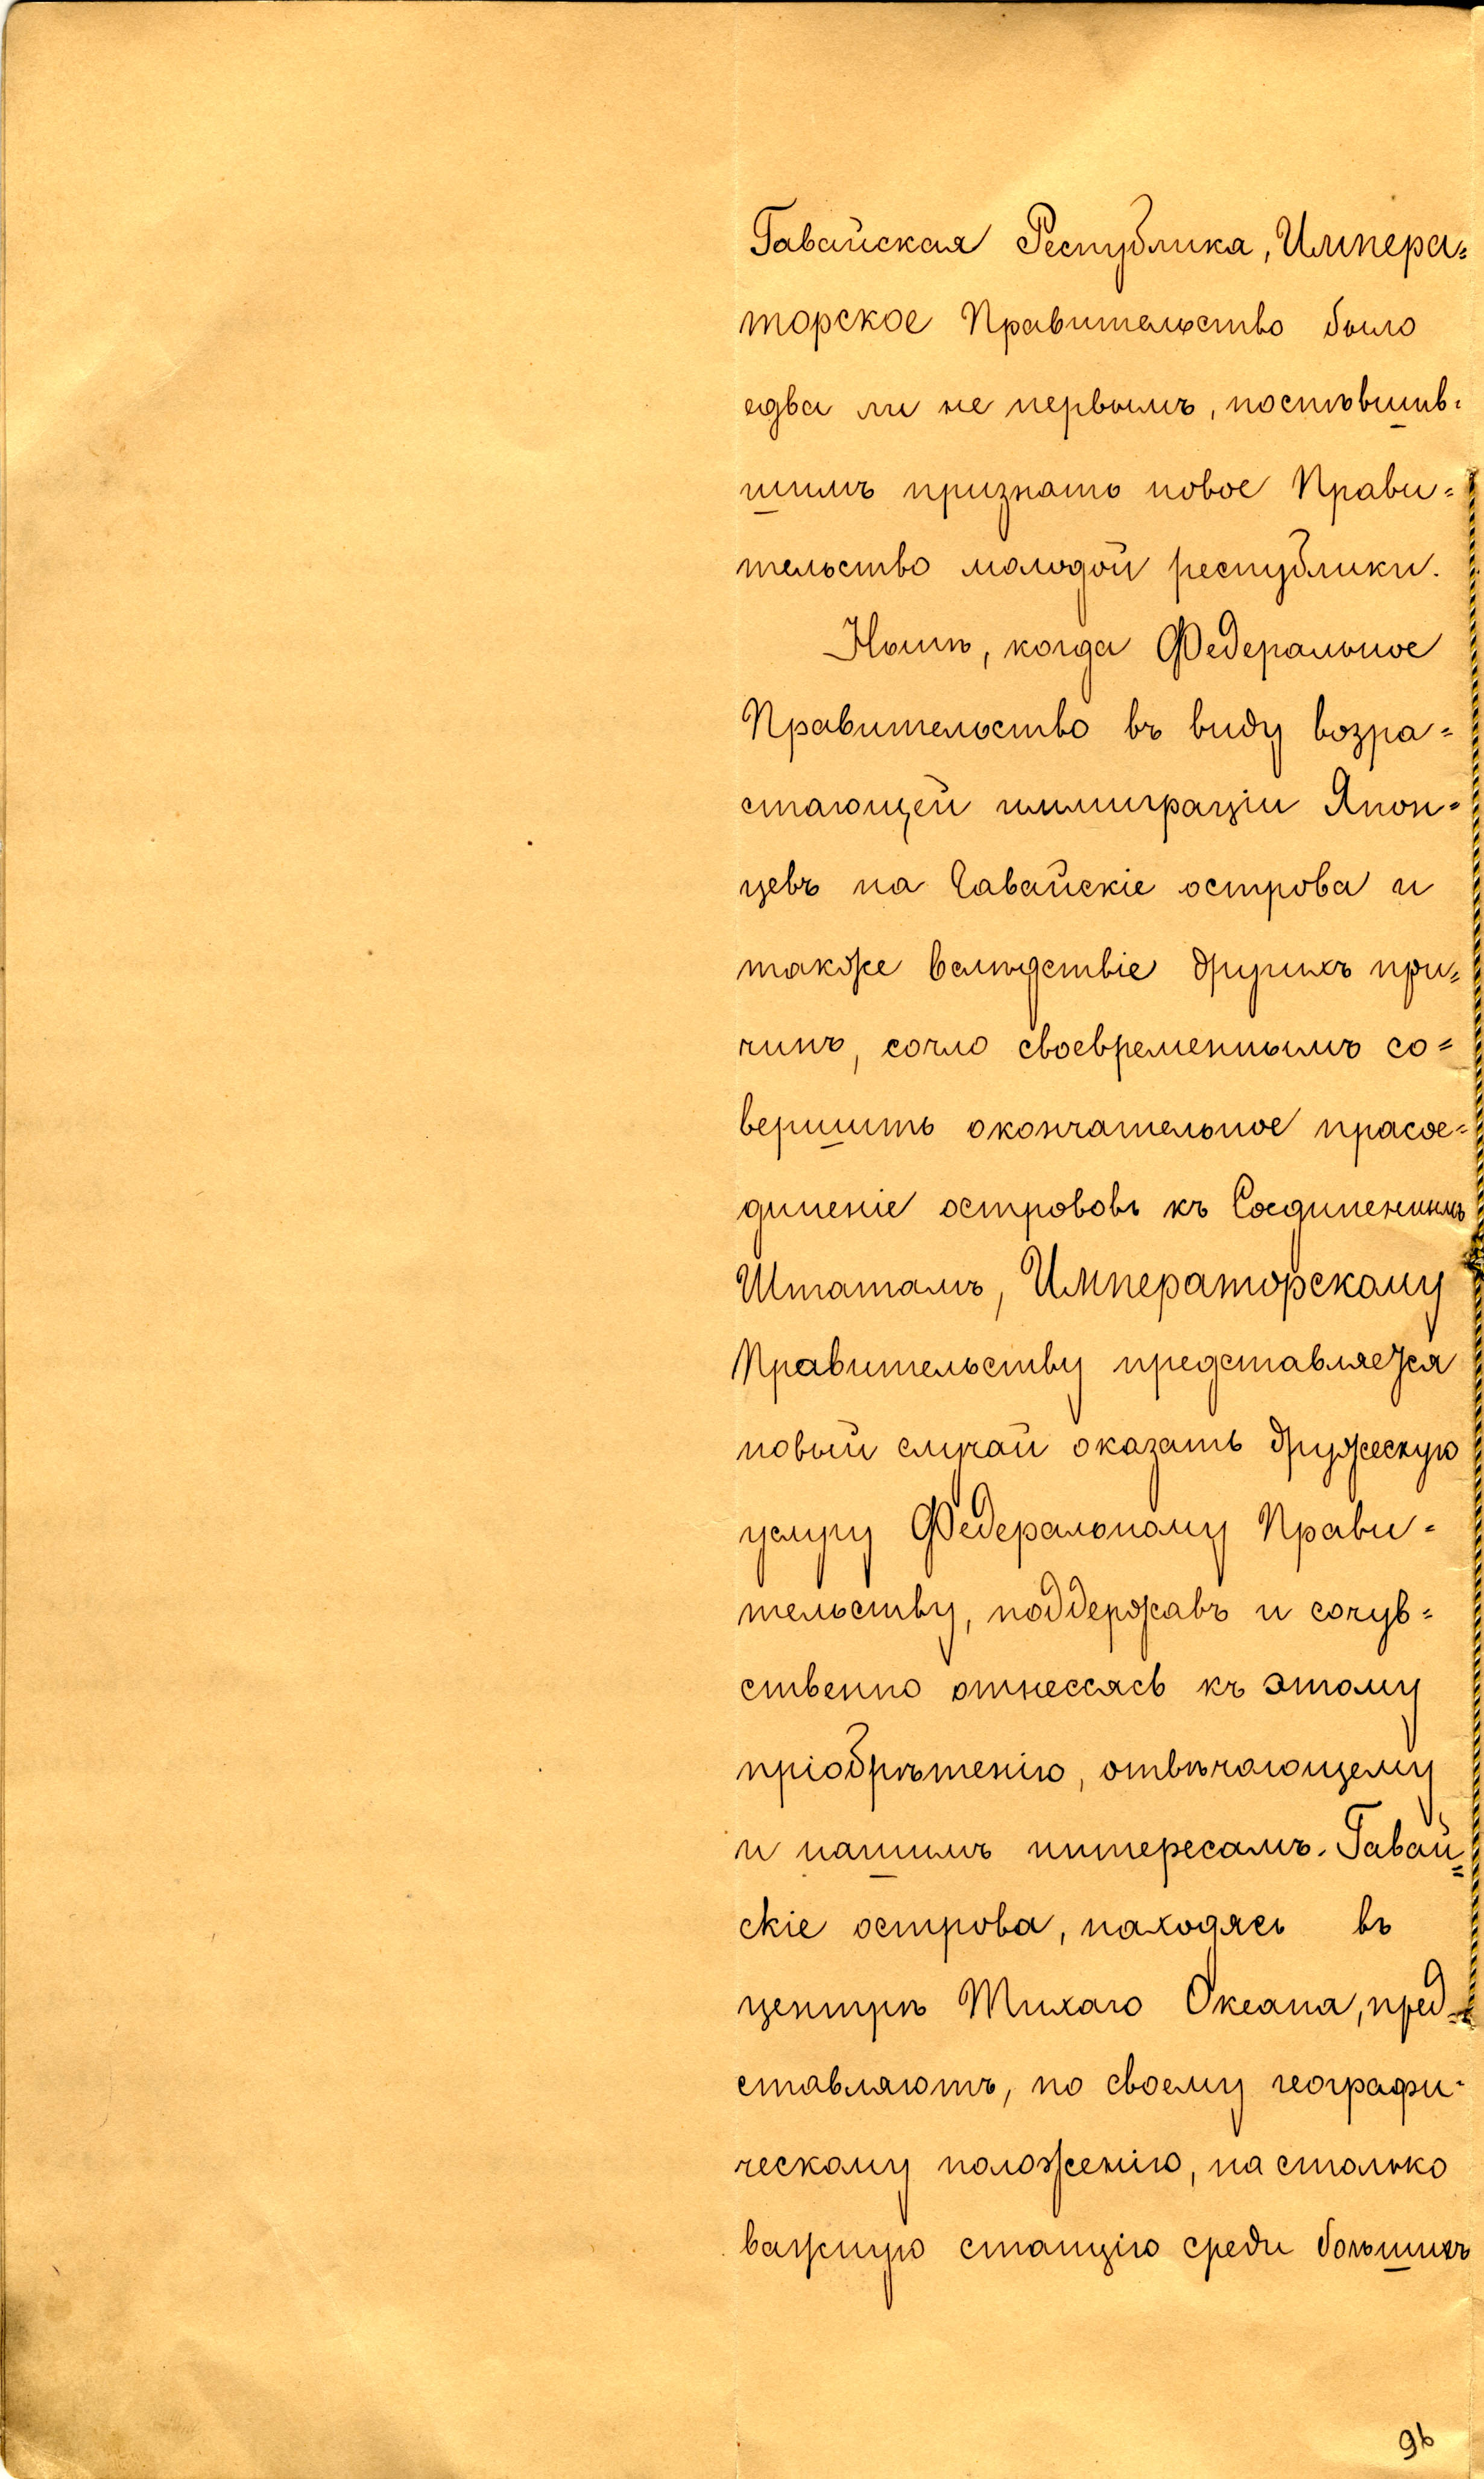 Гавайская Республика, Импера=
торское Правительство было
едва ли не первымъ, поспѣшив=
шимъ признать новое Прави=
тельство молодой республики.
Нынѣ, когда Федеральное
Правительство въ виду возра=
стающей иммиграціи Япон=
цевъ на Гавайскіе острова и
также вслѣдствіе другихъ при=
чинъ, сочло своевременнымъ со=
вершить окончательное прасое=
диненіе острововъ къ Соединеннымъ
Штатамъ, Императорскому
Правительству представляется
новый случай оказать дружескую
услугу Федеральному Прави=
тельству, поддержавъ и сочув=
ственно отнессясь къ этому
пріобрѣтенію, отвѣчающему
и нашимъ интересамъ. Гавай=
скіе острова, находясь въ
центрѣ Тихаго Океана, пред=
ставляютъ, по своему географи=
ческому положенію, на столько
важную станцію среди большихъ
96